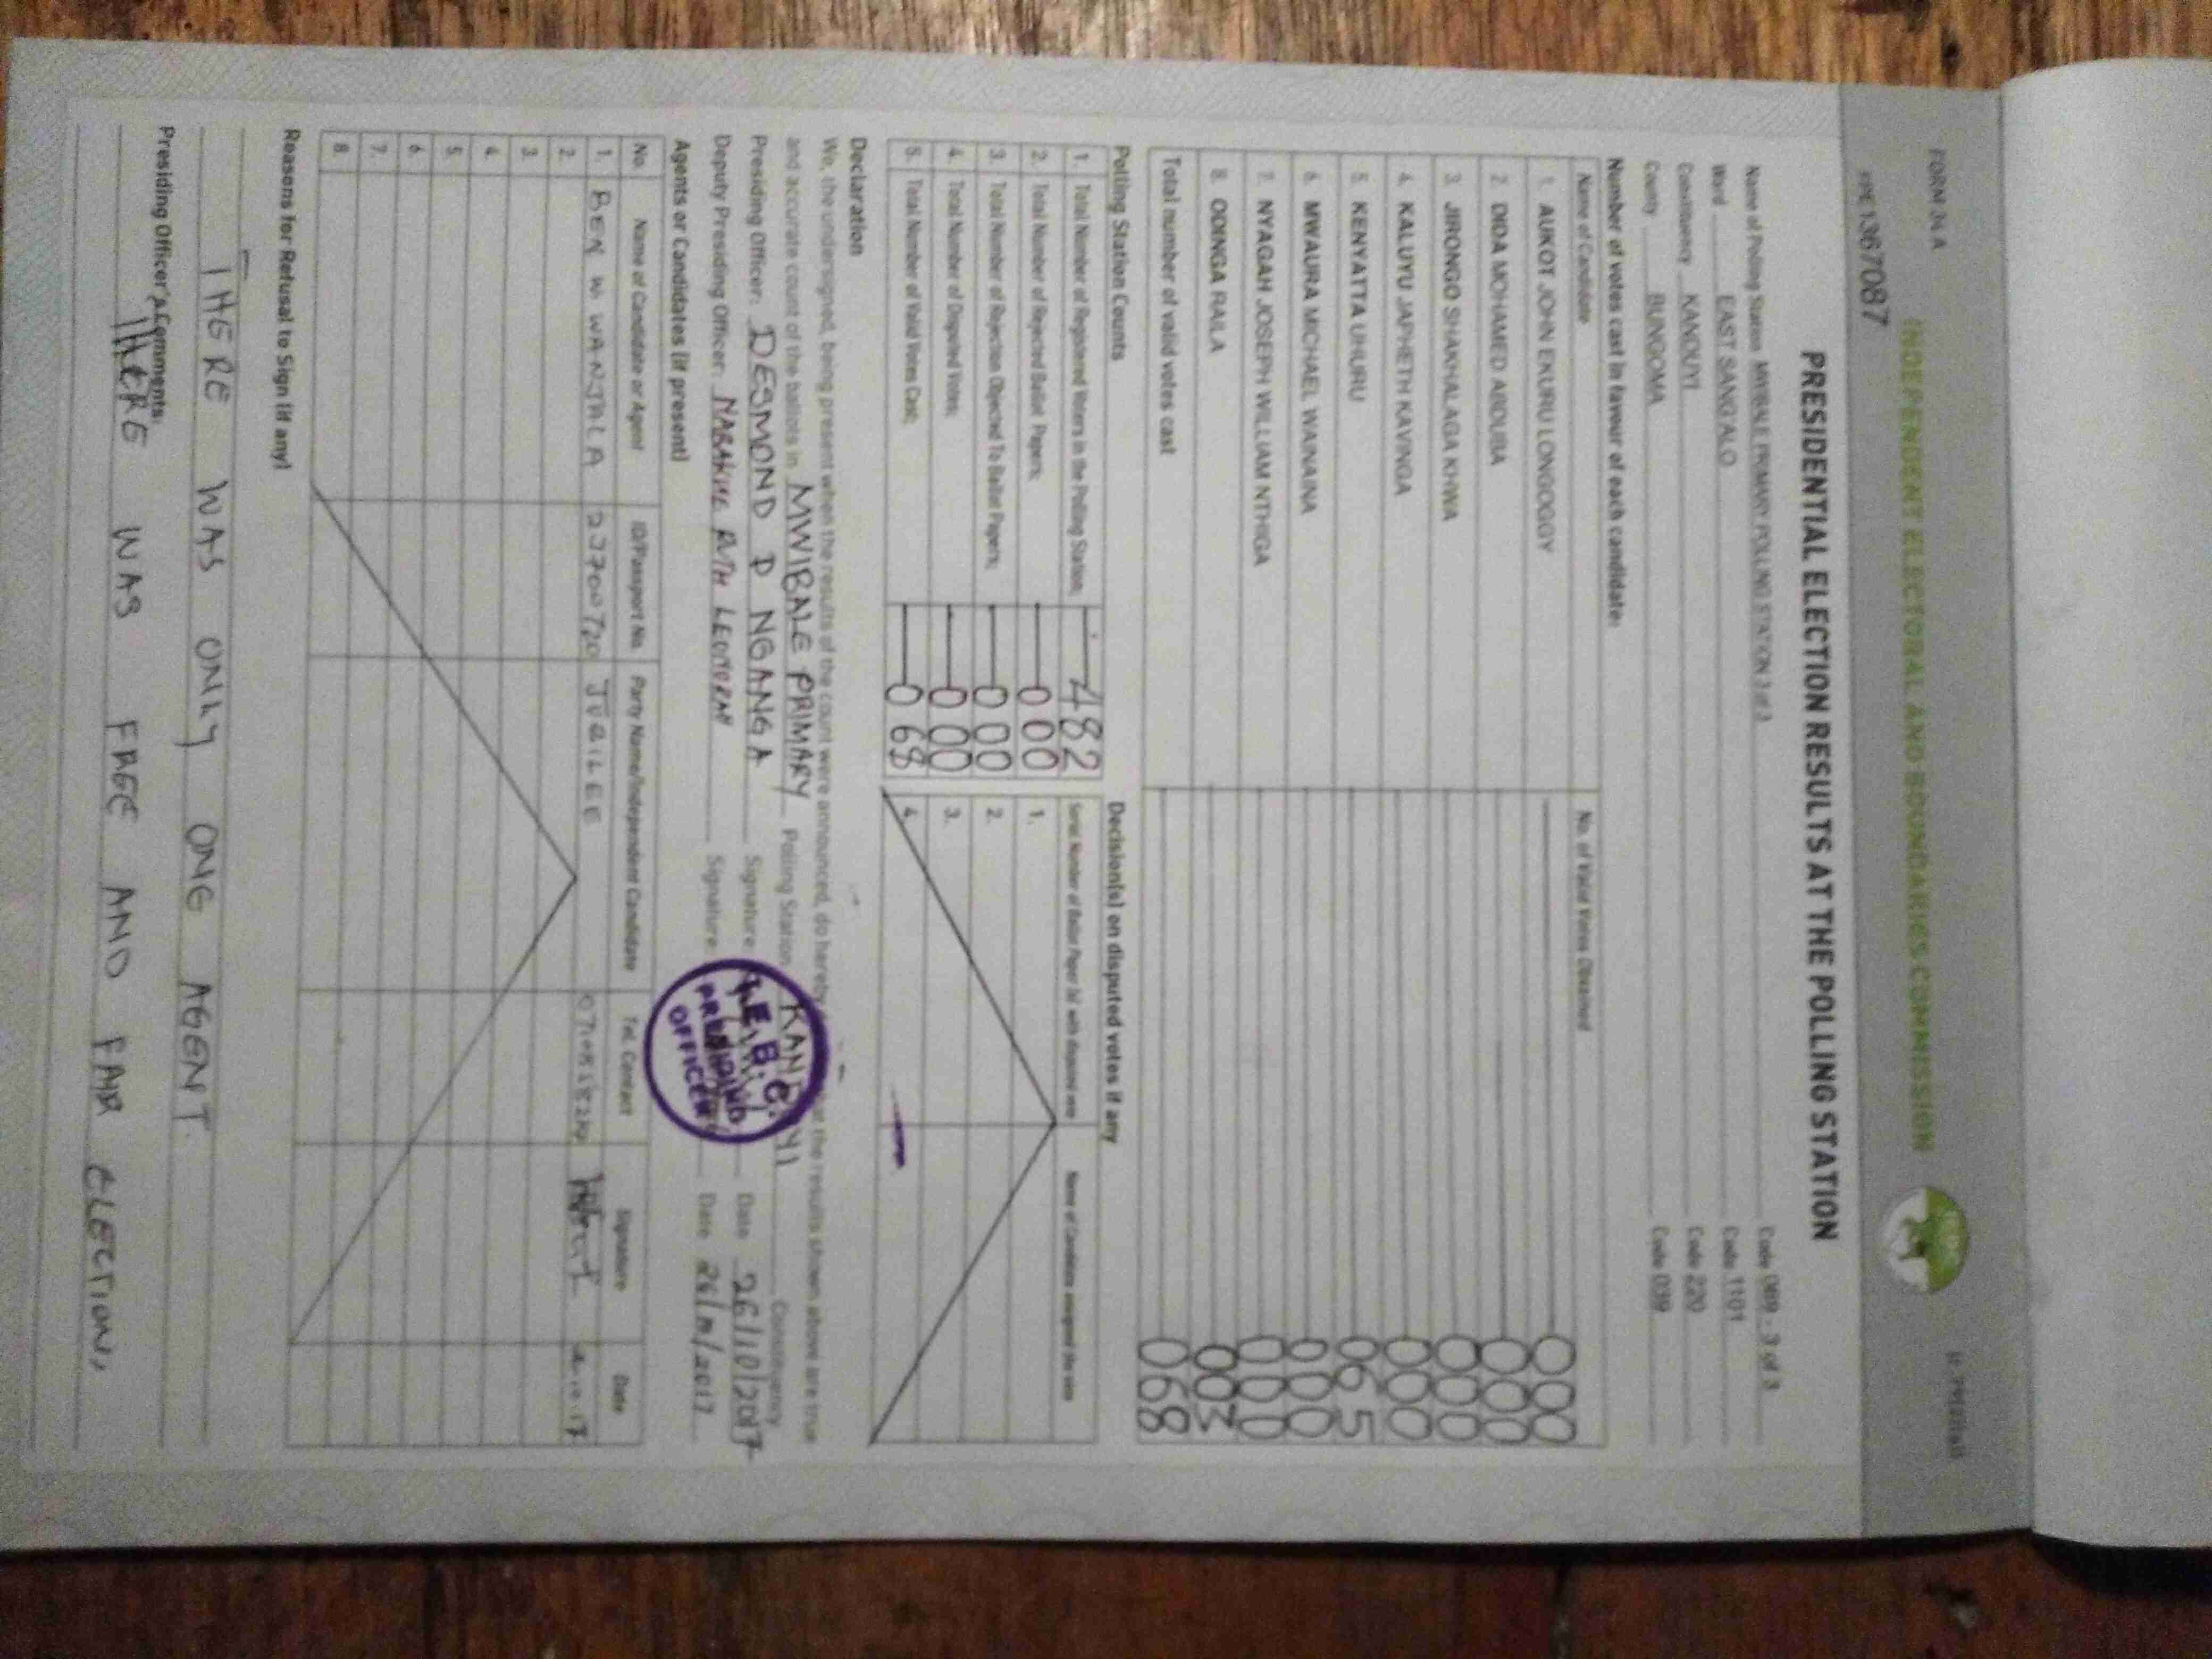 FORM 34 A
INDEPENDENT ELECTORAL AND BOUNDARIES COMMISSION
PRE1367087
PRESIDENTIAL ELECTION RESULTS AT THE POLLING STATION
Name of Polling Station MWIBALE PRIMARY POLLING STATION 3 of 3 Code 069 - 3 of 3
Ward EAST SANG'ALO Code 1101
Constituency KANDUYI Code 220
County BUNGOMA Code 039
Number of votes cast in favour of each candidate:
Name of Candidate No. of Valid Votes Obtained
1. AUKOT JOHN EKURU LONGOGGY 000
2. DIDA MOHAMED ABDUBA 000
3. JIRONGO SHAKHALAGA KHWA 000
4. KALUYU JAPHETH KAVINGA 000
5. KENYATTA UHURU 065
6. MWAURA MICHAEL WAINAINA 000
7. NYAGAH JOSEPH WILLIAM NTHIGA 000
8. ODINGA RAILA 003
Total number of valid votes cast 068
Polling Station Counts
1. Total Number of Registered Voters in the Polling Station; 482
2. Total Number of Rejected Ballot Papers; 000
3. Total Number of Rejection Objected To Ballot Papers; 000
4. Total Number of Disputed Votes; 000
5. Total Number of Valid Votes Cast; 068
Decision(s) on disputed votes if any
Serial Number of Ballot Paper (s) with disputed vote Name of Candidate assigned the vote
1.
2.
3.
4.
Declaration
We, the undersigned, being present when the results of the count were announced, do hereby that the results shown above are true
and accurate count of the ballots in MWIBALE PRIMARY Polling Station KANDUYI Constituency
Presiding Officer: DESMOND D NGANGA Signature Date 26/10/2017
Deputy Presiding Officer: RUTH Signature Date 26/10/2017
I.E.B.C.
PRESIDING
OFFICER
Agents or Candidates (if present)
No. Name of Candidate or Agent ID/Passport No. Party Name/Independent Candidate Tel. Contact Signature Date
1. BEN W. WANJALA 23700720 JUBILEE
2.
3.
4.
5.
6.
7.
8.
Reasons for Refusal to Sign (if any)
THERE WAS ONLY ONE AGENT.
Presiding Officer's Comments:
THERE WAS FREE AND FAIR ELECTION,